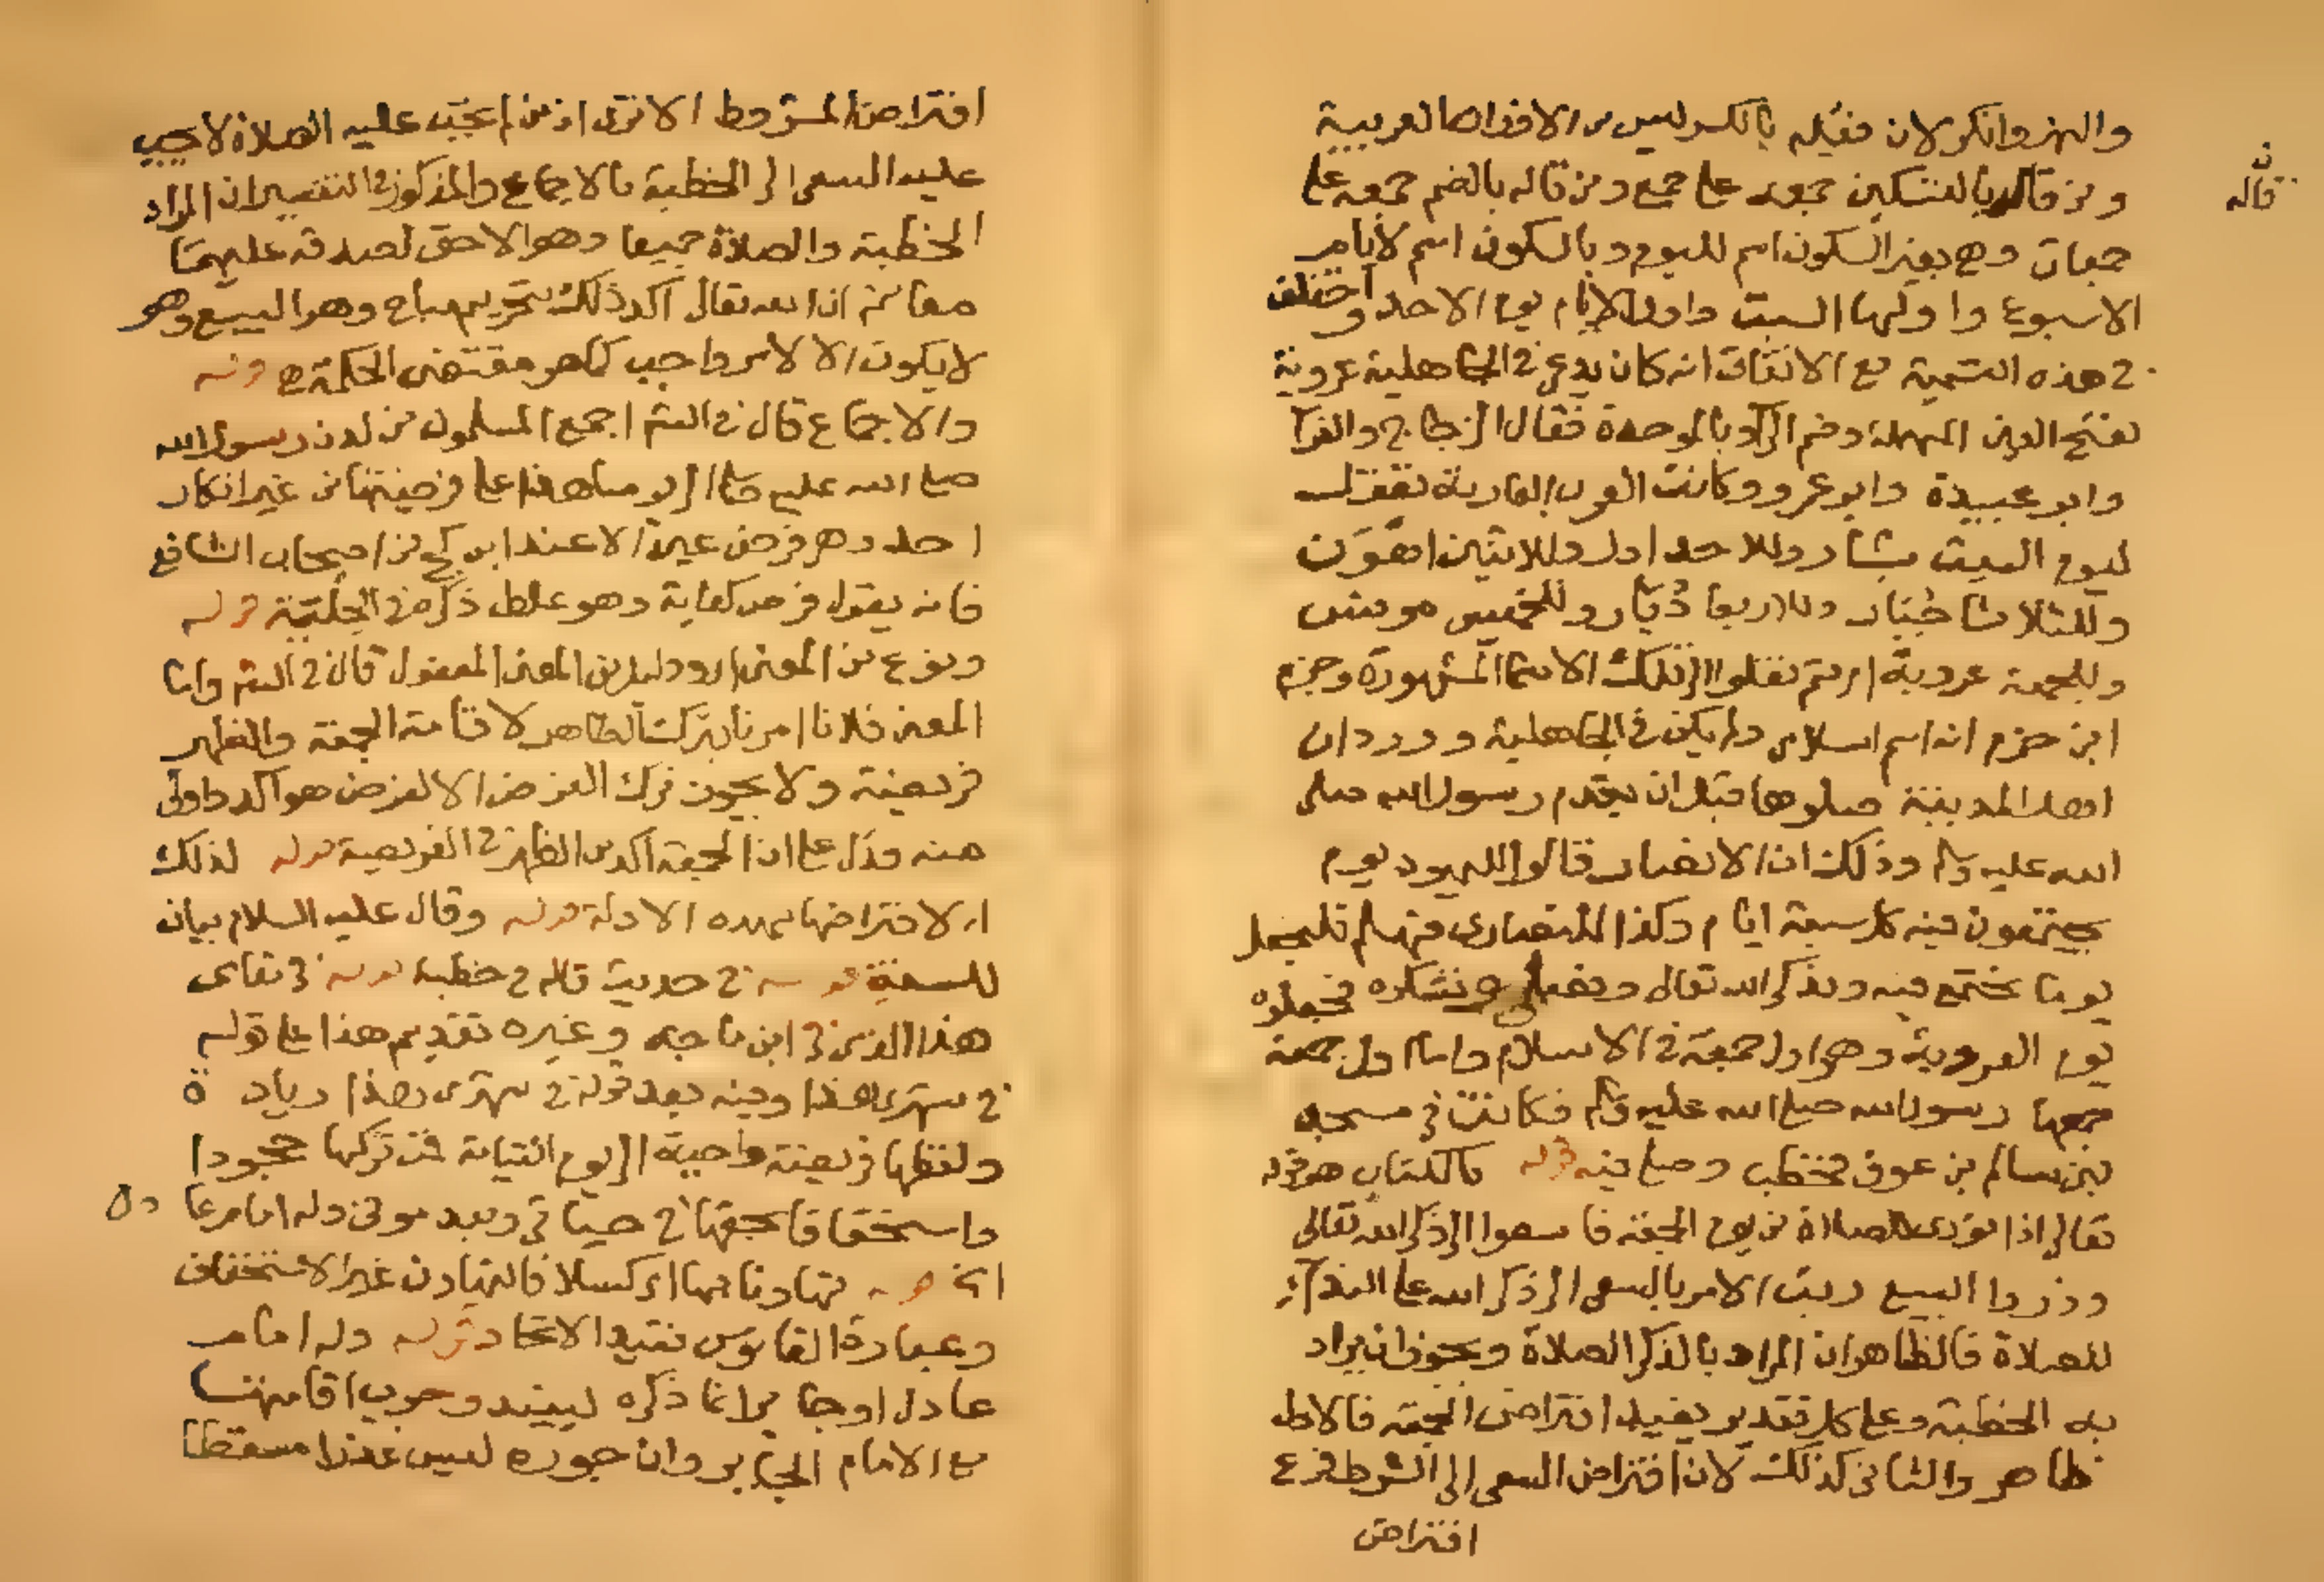 والهز وانكر لان فعيله بالكسر ليس من الاوزان العربية
ومن قاله بالتسكين جمعه على جمع ومن قاله بالضم جمعه على
ن
قاله
جمعات وهي بغير السكون اسم لليوم وبالسكون اسم لايام
الاسبوع واولها السبت واول الايام يوم الاحد واختلف
في هذه التسمية مع الاتفاق انه كان يدعى في الجاهلية عروبة
بفتح العين المهملة وضم الراء وبالموحدة فقال الزجاج والفرا
وابو عبيدة وابو عمرو وكانت العرب العاربة تقول
ليوم السبت شبار وللاحد اول وللاثنين اهون
وللثلاثا جبار وللاربعا دبار وللخميس مونس
وللجمعة عروبة ثم نقلوا الى تلك الاسما المشهورة وجزم
ابن حزم انه اسم اسلامي ولم يكن في الجاهلية وورد ان
اهل المدينة صلوها قبل ان يقدم رسول الله صلى
الله عليه وسلم وذلك ان الانصار قالوا لليهود يوم
يجتمعون فيه كل سبعة ايام وكذا للنصارى فهلم فلنجعل
يوما نجتمع فيه ونذكر الله تعالى ونصلي ونشكره فجعلوه
يوم العروبة وهو اول جمعة في الاسلام واما اول جمعة
جمعها رسول الله صلى الله عليه وسلم فكانت في مسجد
بني سالم بن عوف فخطب وصلى فيه قوله بالكتاب هو قوله
تعالى اذا نودي للصلاة من يوم الجمعة فاسعوا الى ذكر الله تعالى
وذروا البيع رتب الامر بالسعي الى ذكر الله على الندآء
للصلاة فالظاهر ان المراد بالذكر الصلاة ويجوز ان يراد
به الخطبة وعلى كل تقدير يفيد افتراض الجمعة فالاول
ظاهر والثاني كذلك لان افتراض السعي الى الشرط فرع
افتراض
افتراض المشروط الا ترى ان من لم تجب عليه الصلاة لا يجب
عليه السعي الى الخطبة بالاجماع والمذكور في التفسير ان المراد
الخطبة والصلاة جميعا وهو الاحق لصدقه عليهما
معا ثم ان الله تعالى اكد ذلك بتحريم مباح وهو البيع وهو
لا يكون الا لامر واجب كما هو مقتضى الحكمة ح قوله
والاجماع قال في الشر اجمع المسلمون من لدن رسول الله
صلى الله عليه وسلم الى يومنا هذا على فرضيتها من غير انكار
احد وهو فرض عين الا عند ابن كج من اصحاب الشافع
فانه يقول فرض كفاية وهو غلط ذكره في الحلية قوله
ونوع من المعنى اي ودليل من المعنى المعقول قال في الشر واما
المعنى فلانا امرنا بترك الظاهر لاقامة الجمعة والظهر
فريضة ولا يجوز ترك الفرض الا لفرض هو اكد واولى
منه فدل على ان الجمعة اكد من الظهر في الفريضة قوله لذلك
اي لافتراضها بهذه الادلة قوله وقال عليه السلام بيان
للسنة قوله في حديث قاله في خطبة قوله في مقامي
هذا الذي في ابن ماجه وغيره تقديم هذا على قوله
في شهري هذا وفيه بعد قوله في شهري هذا زيادة
ولفظها فريضة واجبة الى يوم القيامة فمن تركها جحودا
واستخفافا بحقها في حياتي وبعد موتي وله امام عادل
الخ قوله تهاونا بها اي كسلا فالتهاون غير الاستخفاف
وعبارة القاموس تفيد الاتحاد قوله وله امام
عادل او جاير انما ذكره ليفيد وجوب اقامتها
مع الامام الجاير وان جوره ليس عذرا مسقطا